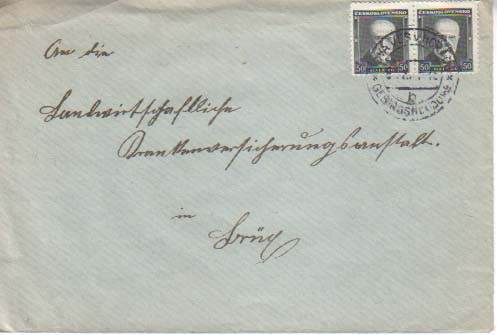 ČESKOSLOVENSKO ČESKOSLOVENSKO
50 50 50 50
GEBIRGSNEUDORF
b
An die
Landwirtschaftliche
Krankenversicherungsanstalt.
in
Brüx